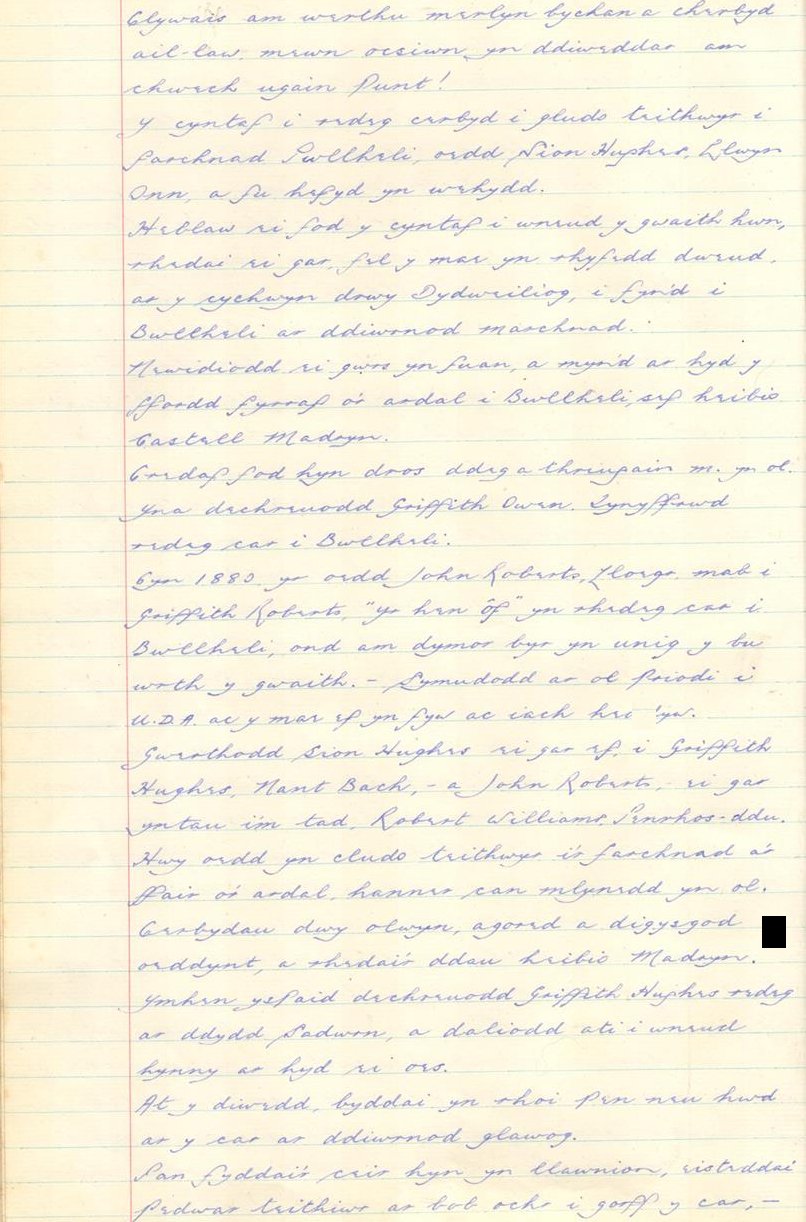 Clywais am werthu merlyn bychan a cherbyd
ail-law, mewn ocsiwn, yn ddiweddar am
chwech ugain Punt!
Y cyntaf i redeg cerbyd i gludo teithwyr i
farchnad Pwllheli, oedd Sion Hughes, Llwyn
Onn, a fu hefyd yn wehydd.
Heblaw ei fod y cyntaf i wneud y gwaith hwn,
rhedai ei gar, fel y mae yn rhyfedd dweud,
ar y cychwyn drwy Dydweiliog, i fyn'd i
Bwllheli ar ddiwrnod marchnad.
Newidiodd ei gwrs yn fuan, a myn'd ar hyd y
ffordd fyrraf o'r ardal i Bwllheli, sef heibio
Castell Madryn.
Credaf fod hyn dros ddeg a thriugain m. yn ol.
Yna dechreuodd Griffith Owen. Tynyffrwd
redeg car i Bwllheli.
Cyn 1880 yr oedd John Roberts, Lloegr. mab i
Griffith Roberts, "yr hen ôf" yn rhedeg car i
Bwllheli, ond am dymor byr yn unig y bu
wrth y gwaith. - Symudodd ar ol Priodi i
U.D.A. ac y mae ef yn fyw ac iach hei 'yw.
Gwerthodd Sion Hughes ei gar ef, i Griffith
Hughes, Nant Bach, - a John Roberts, - ei gar
yntau i'm tad, Robert Williams, Penrhos-ddu.
Hwy oedd yn cludo teithwyr i'r farchnad a'r
ffair o'r ardal, hanner can mlynedd yn ol.
Cerbydau dwy olwyn, agored a digysgod
oeddynt, a rhedai'r ddau heibio Madryn.
Ymhen yspaid dechreuodd Griffith Hughes redeg
ar ddydd Sadwrn, a daliodd ati i wneud
hynny ar hyd ei oes.
At y diwedd, byddai yn rhoi Pen neu hwd
ar y car ar ddiwrnod glawog.
Pan fyddai'r ceir hyn yn llawnion, eisteddai
Pedwar teithiwr ar bob ochr i gorff y car, -